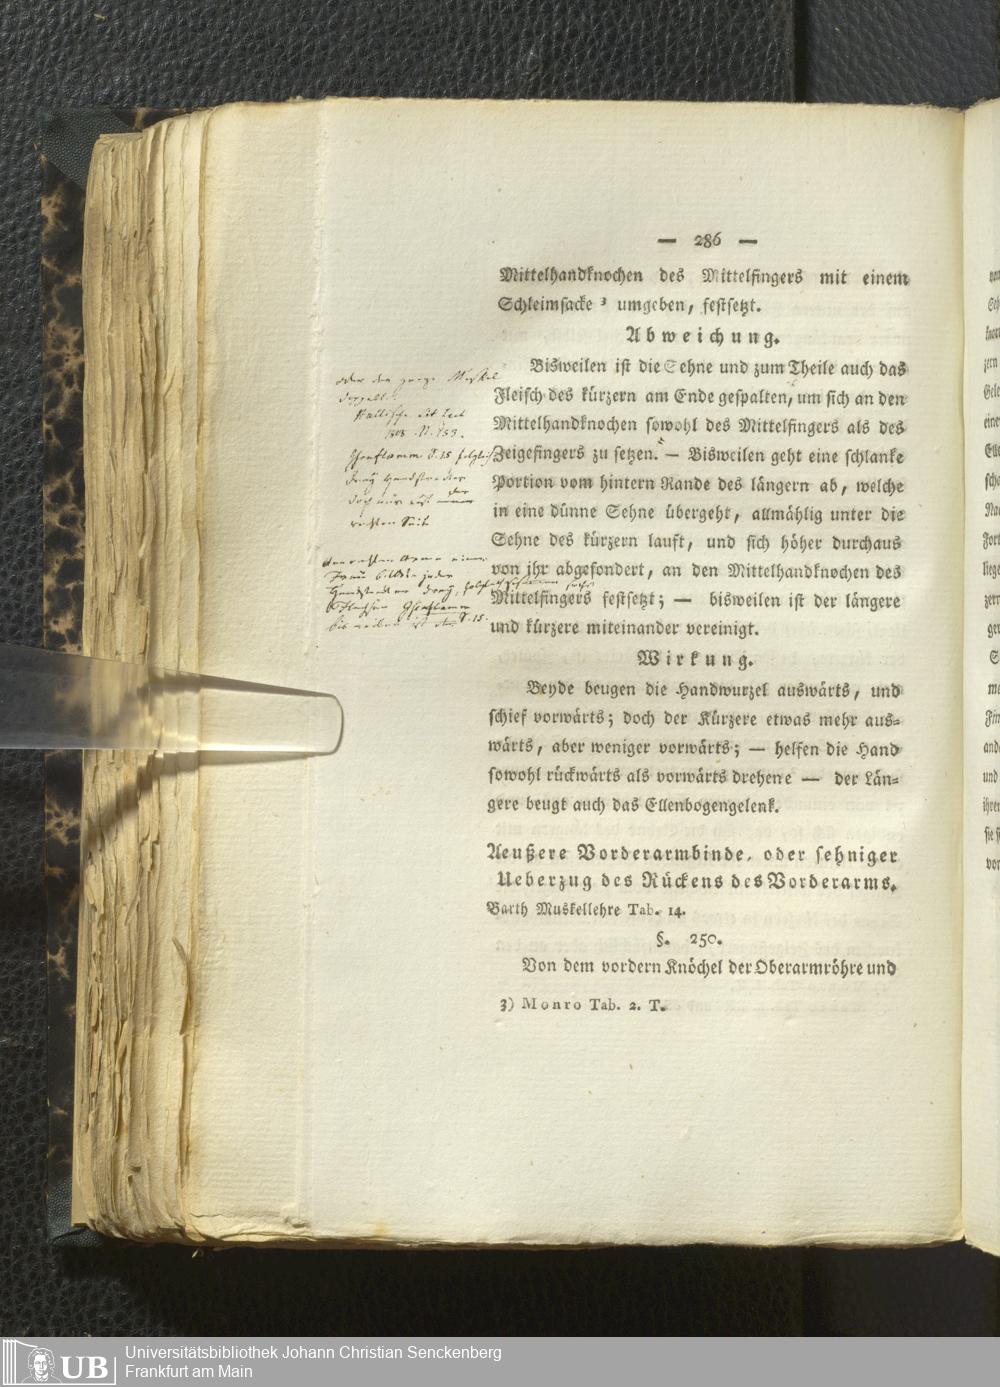 — 286 —
Mittelhandknochen des Mittelfingers mit einem
Schleimsacke ³ umgeben, festsetzt.
Abweichung.
Bisweilen ist die Sehne und zum Theile auch das
Fleisch des kürzern am Ende gespalten, um sich an den
Mittelhandknochen sowohl des Mittelfingers als des
Zeigefingers zu setzen. — Bisweilen geht eine schlanke
Portion vom hintern Rande des längern ab, welche
in eine dünne Sehne übergeht, allmählig unter die
Sehne des kürzern lauft, und sich höher durchaus
von ihr abgesondert, an den Mittelhandknochen des
Mittelfingers festsetzt; — bisweilen ist der längere
und kürzere miteinander vereinigt.
Wirkung.
Beyde beugen die Handwurzel auswärts, und
schief vorwärts; doch der Kürzere etwas mehr aus-
wärts, aber weniger vorwärts; — helfen die Hand
sowohl rückwärts als vorwärts drehene — der Län-
gere beugt auch das Ellenbogengelenk.
Aeußere Vorderarmbinde, oder sehniger
Ueberzug des Rückens des Vorderarms.
Barth Muskellehre Tab. 14.
§. 250.
Von dem vordern Knöchel der Oberarmröhre und
3) Monro Tab. 2. T.
oder der ganze Muskel
doppelt.
Hallische Lit Zeit
1808 N. 
S. 15
doch nur auf der
rechten Seite
S. 15.
UB
Universitätsbibliothek Johann Christian Senckenberg
Frankfurt am Main